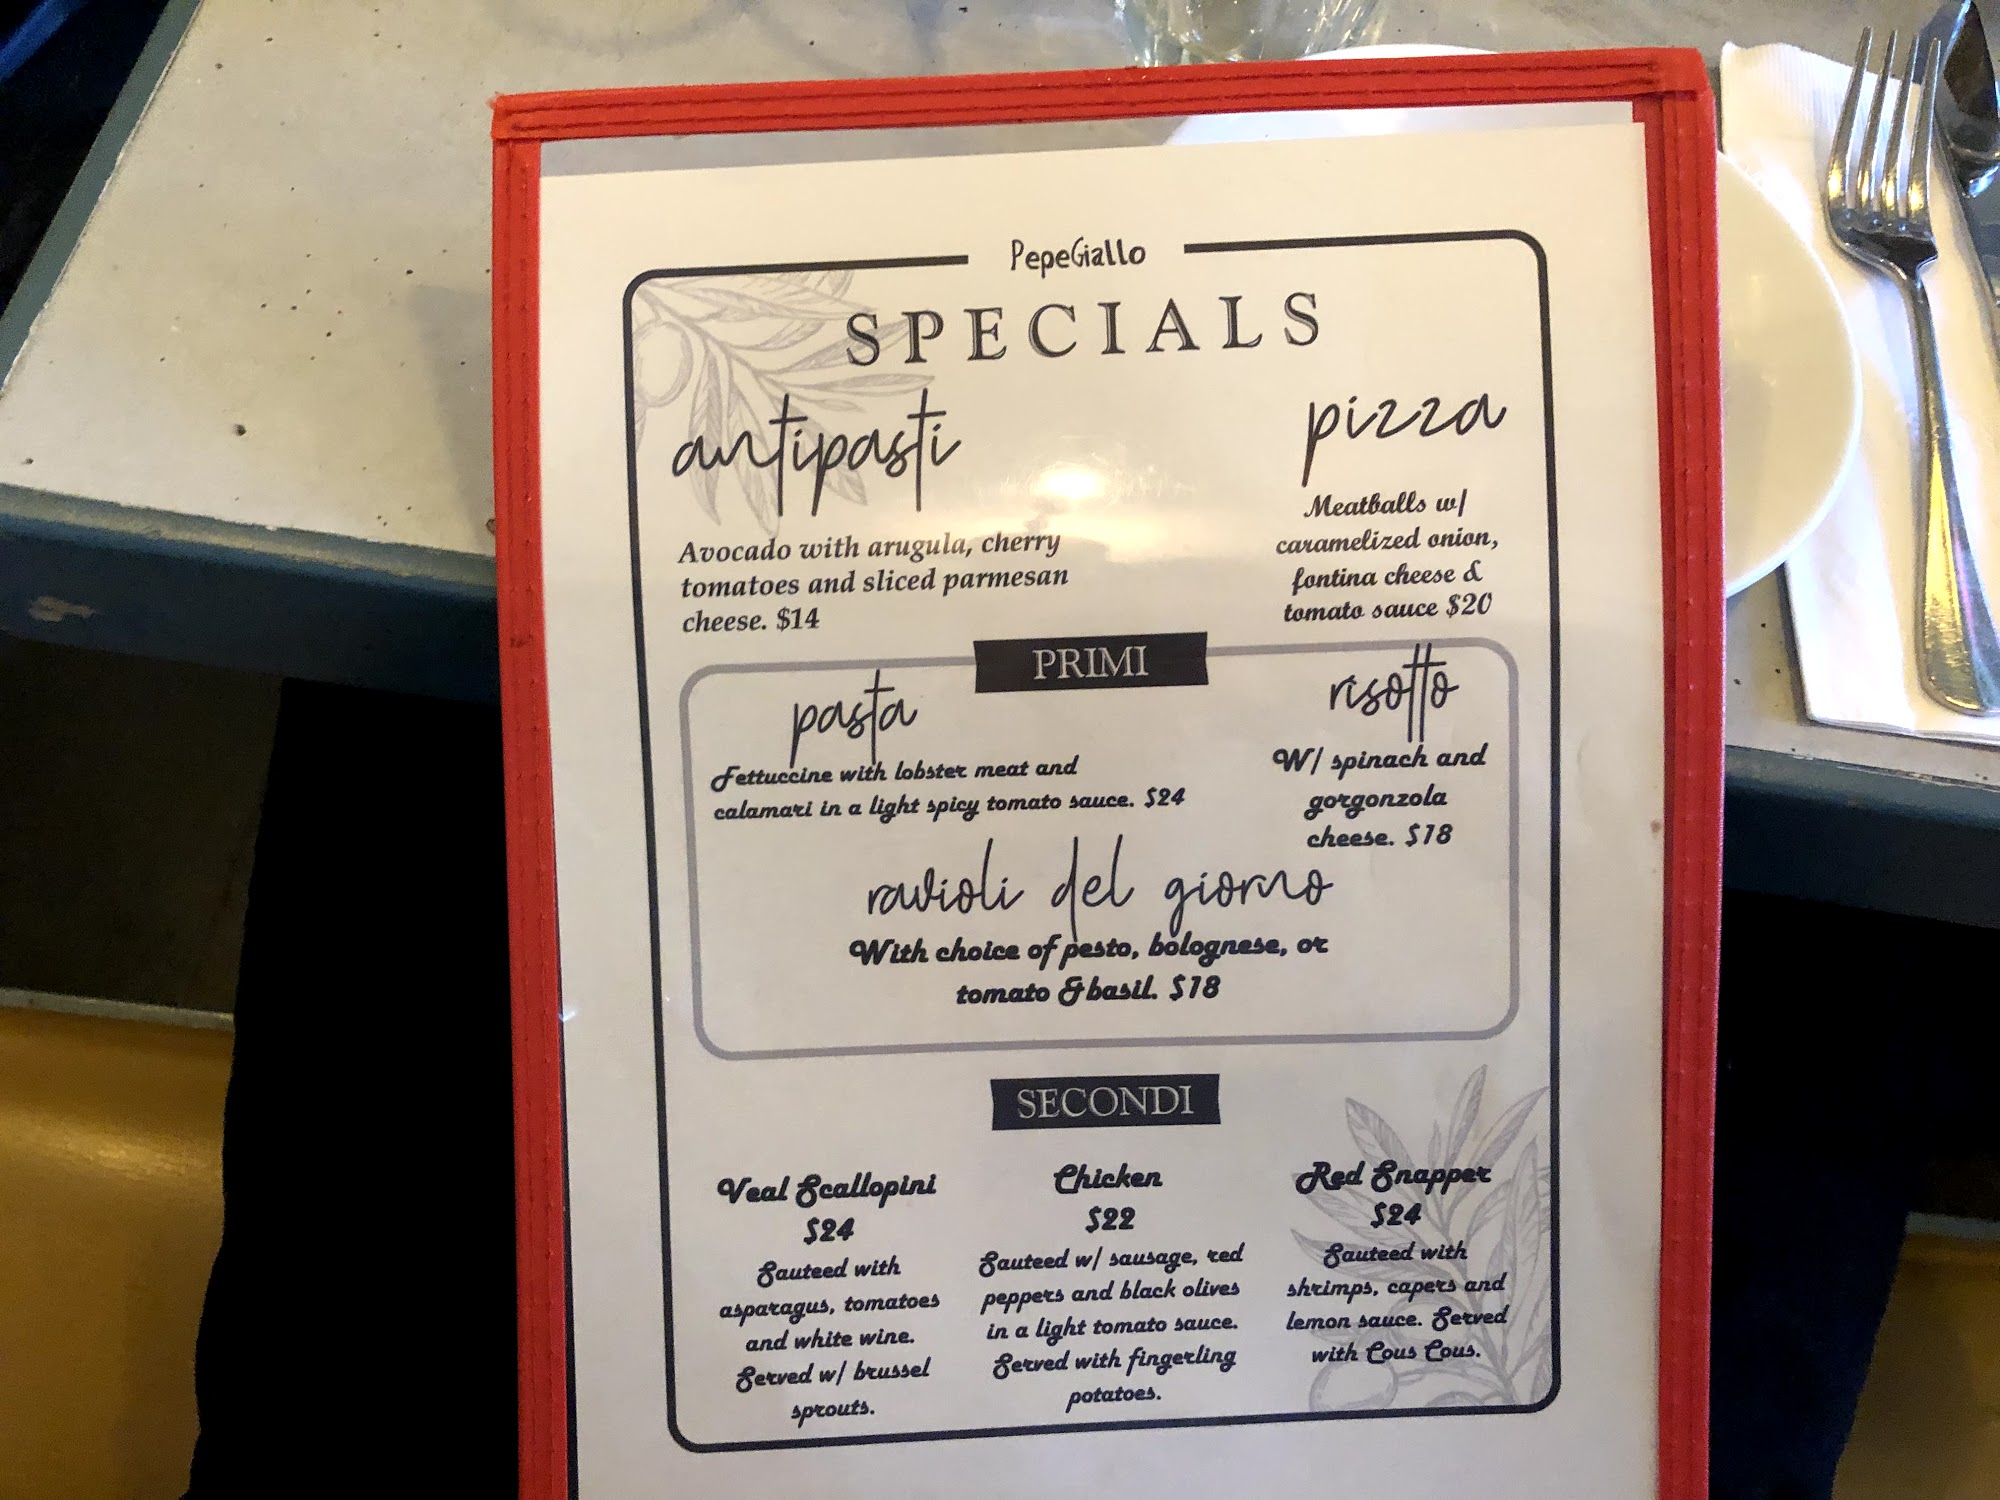 PepeGiallo
SPECIALS
antipasti
Avocado with arugula, cherry
tomatoes and sliced parmesan
cheese. $14
pizza
Meatballs w/
caramelized onion,
fontina cheese &
tomato sauce $20
PRIMI
pasta
Fettuccine with lobster meat and
calamari in a light spicy tomato sauce. $24
risotto
W/ spinach and
gorgonzola
cheese. $18
ravioli del giorno
With choice of pesto, bolognese, or
tomato & basil. $18
SECONDI
Veal Scallopini
$24
Sauteed with
asparagus, tomatoes
and white wine.
Served w/ brussel
sprouts.
Chicken
$22
Sauteed w/ sausage, red
peppers and black olives
in a light tomato sauce.
Served with fingerling
potatoes.
Red Snapper
$24
Sauteed with
shrimps, capers and
lemon sauce. Served
with Cous Cous.